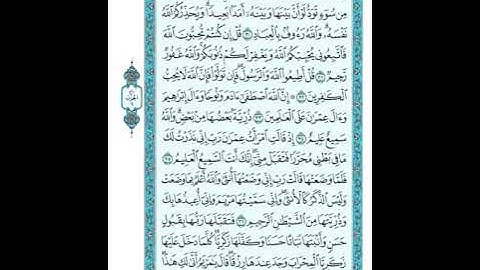 مِن سُوٓءٍ تَوَدُّ لَوْ أَنَّ بَيْنَهَا وَبَيْنَهُۥٓ أَمَدًۢا بَعِيدًا ۗ وَيُحَذِّرُكُمُ ٱللَّهُ
نَفْسَهُۥ ۗ وَٱللَّهُ رَءُوفٌۢ بِٱلْعِبَادِ ۝٣٠ قُلْ إِن كُنتُمْ تُحِبُّونَ ٱللَّهَ
فَٱتَّبِعُونِى يُحْبِبْكُمُ ٱللَّهُ وَيَغْفِرْ لَكُمْ ذُنُوبَكُمْ ۗ وَٱللَّهُ غَفُورٌ
رَّحِيمٌ ۝٣١ قُلْ أَطِيعُوا۟ ٱللَّهَ وَٱلرَّسُولَ ۖ فَإِن تَوَلَّوْا۟ فَإِنَّ ٱللَّهَ لَا يُحِبُّ
ٱلْكَٰفِرِينَ ۝٣٢ ۞ إِنَّ ٱللَّهَ ٱصْطَفَىٰٓ ءَادَمَ وَنُوحًا وَءَالَ إِبْرَٰهِيمَ
وَءَالَ عِمْرَٰنَ عَلَى ٱلْعَٰلَمِينَ ۝٣٣ ذُرِّيَّةًۢ بَعْضُهَا مِنۢ بَعْضٍ ۗ وَٱللَّهُ
سَمِيعٌ عَلِيمٌ ۝٣٤ إِذْ قَالَتِ ٱمْرَأَتُ عِمْرَٰنَ رَبِّ إِنِّى نَذَرْتُ لَكَ
مَا فِى بَطْنِى مُحَرَّرًا فَتَقَبَّلْ مِنِّىٓ ۖ إِنَّكَ أَنتَ ٱلسَّمِيعُ ٱلْعَلِيمُ ۝٣٥
فَلَمَّا وَضَعَتْهَا قَالَتْ رَبِّ إِنِّى وَضَعْتُهَآ أُنثَىٰ وَٱللَّهُ أَعْلَمُ بِمَا وَضَعَتْ
وَلَيْسَ ٱلذَّكَرُ كَٱلْأُنثَىٰ ۖ وَإِنِّى سَمَّيْتُهَا مَرْيَمَ وَإِنِّىٓ أُعِيذُهَا بِكَ
وَذُرِّيَّتَهَا مِنَ ٱلشَّيْطَٰنِ ٱلرَّجِيمِ ۝٣٦ فَتَقَبَّلَهَا رَبُّهَا بِقَبُولٍ
حَسَنٍ وَأَنۢبَتَهَا نَبَاتًا حَسَنًا وَكَفَّلَهَا زَكَرِيَّا ۖ كُلَّمَا دَخَلَ عَلَيْهَا
زَكَرِيَّا ٱلْمِحْرَابَ وَجَدَ عِندَهَا رِزْقًا ۖ قَالَ يَٰمَرْيَمُ أَنَّىٰ لَكِ هَٰذَا ۖ